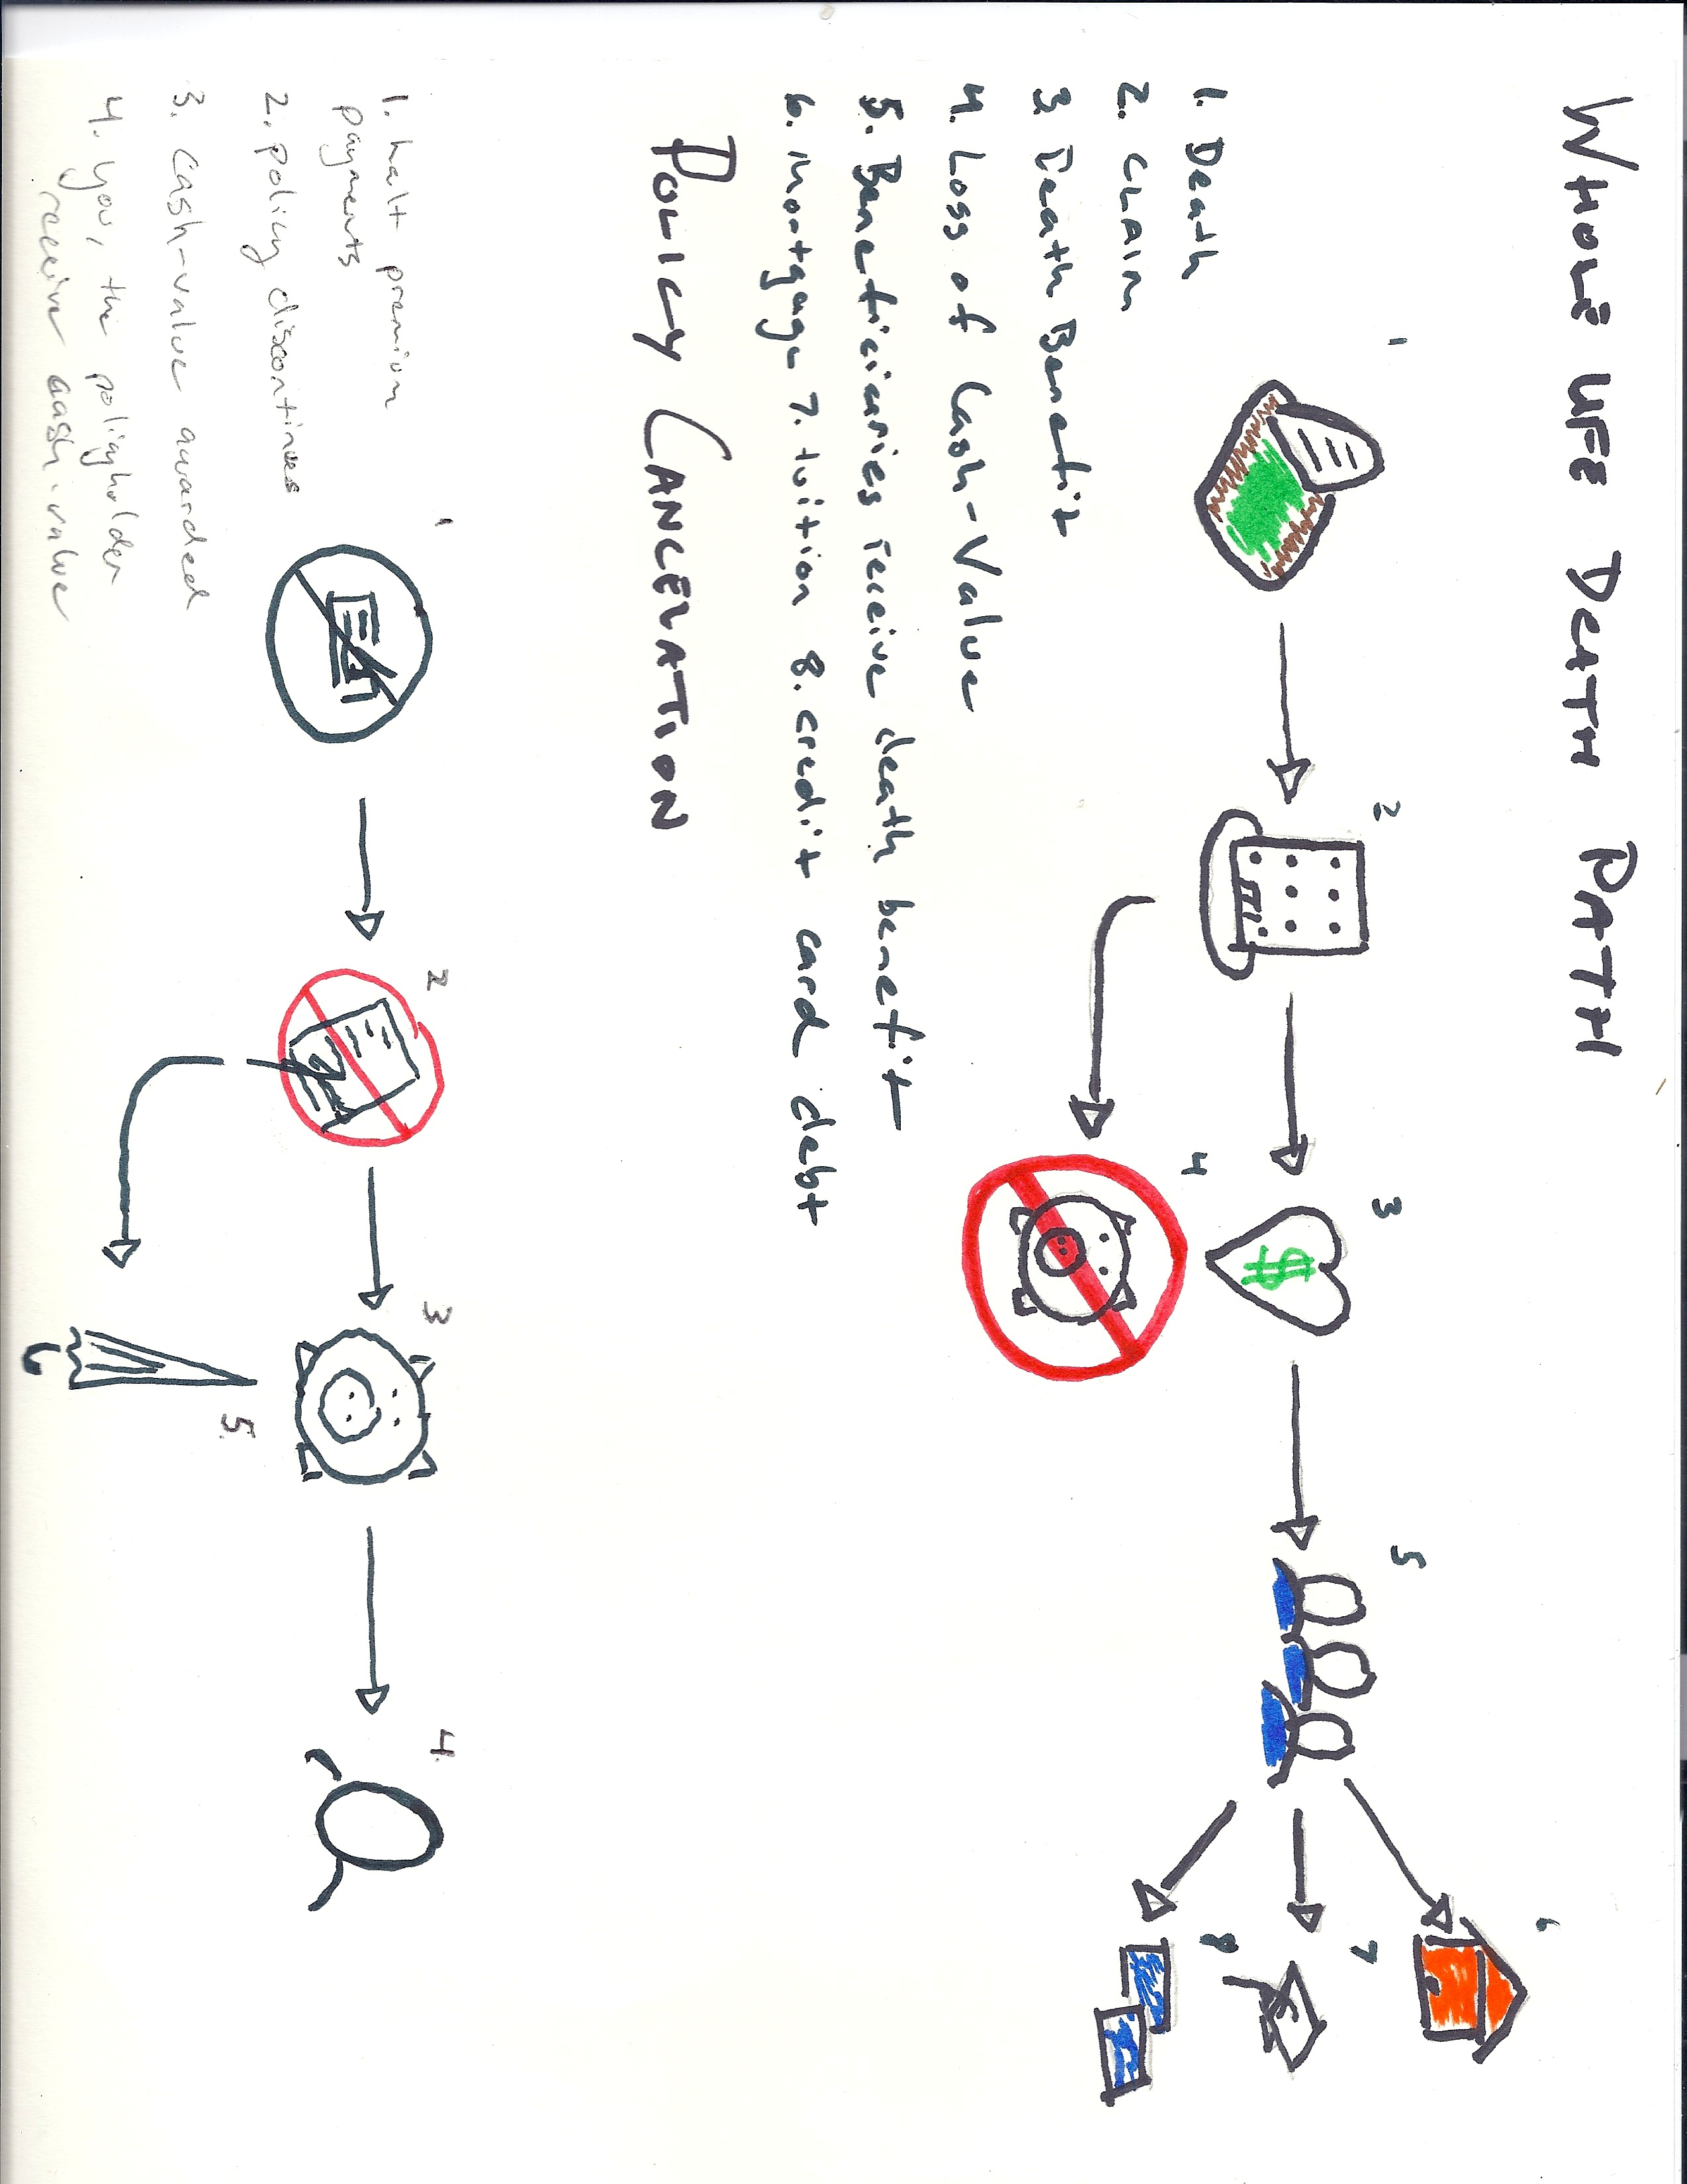 WHOLE LIFE DEATH PATH
1
2
3
4
5
6
7
8
$
1. Death
2. CLAIM
3. Death Benefit
4. Loss of Cash-Value
5. Beneficiaries receive death benefit
6. mortgage 7. tuition 8. credit card debt
POLICY CANCELATION
1
2
3
4.
5.
1. halt premium
payments
2. policy discontinues
3. Cash-value awarded
4. You, the policyholder
receive cash-value